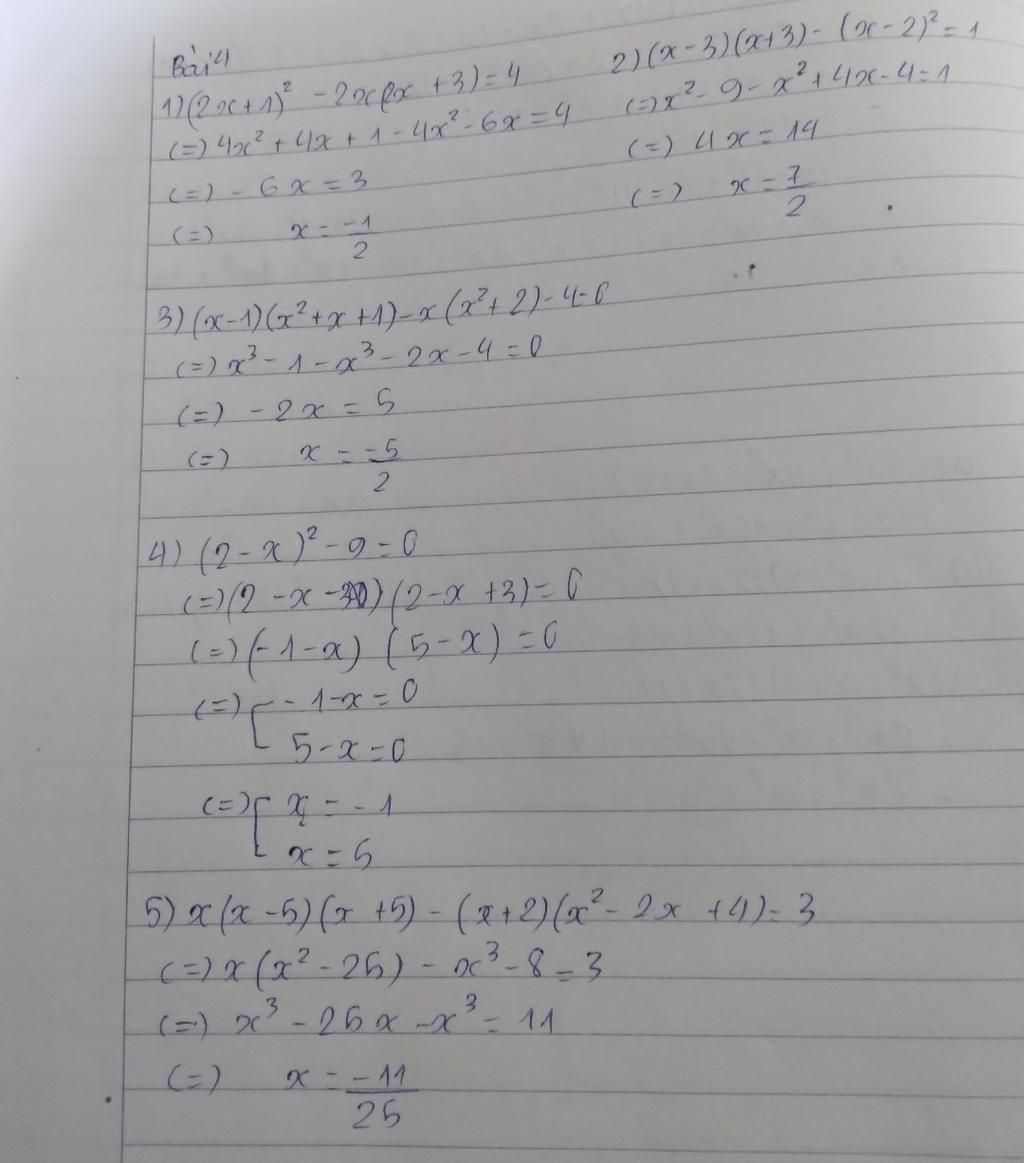 Bài 4
1) (2x+1)² - 2x(2x+3)=4
(=) 4x² + 4x + 1 - 4x² - 6x = 4
(=) - 6x = 3
(=) x = -1/2
2) (x-3)(x+3) - (x-2)² = 1
(=) x² - 9 - x² + 4x - 4 = 1
(=) 4x = 14
(=) x = 7/2
3) (x-1)(x²+x+1) - x(x²+2) - 4 = 0
(=) x³ - 1 - x³ - 2x - 4 = 0
(=) - 2x = 5
(=) x = -5/2
4) (2-x)² - 9 = 0
(=) (2-x-3)(2-x+3) = 0
(=) (-1-x) (5-x) = 0
(=) [ -1-x = 0
5-x = 0
(=) [ x = -1
x = 5
5) x(x-5)(x+5) - (x+2)(x²-2x+4) = 3
(=) x(x²-25) - x³ - 8 = 3
(=) x³ - 25x - x³ = 11
(=) x = -11/25